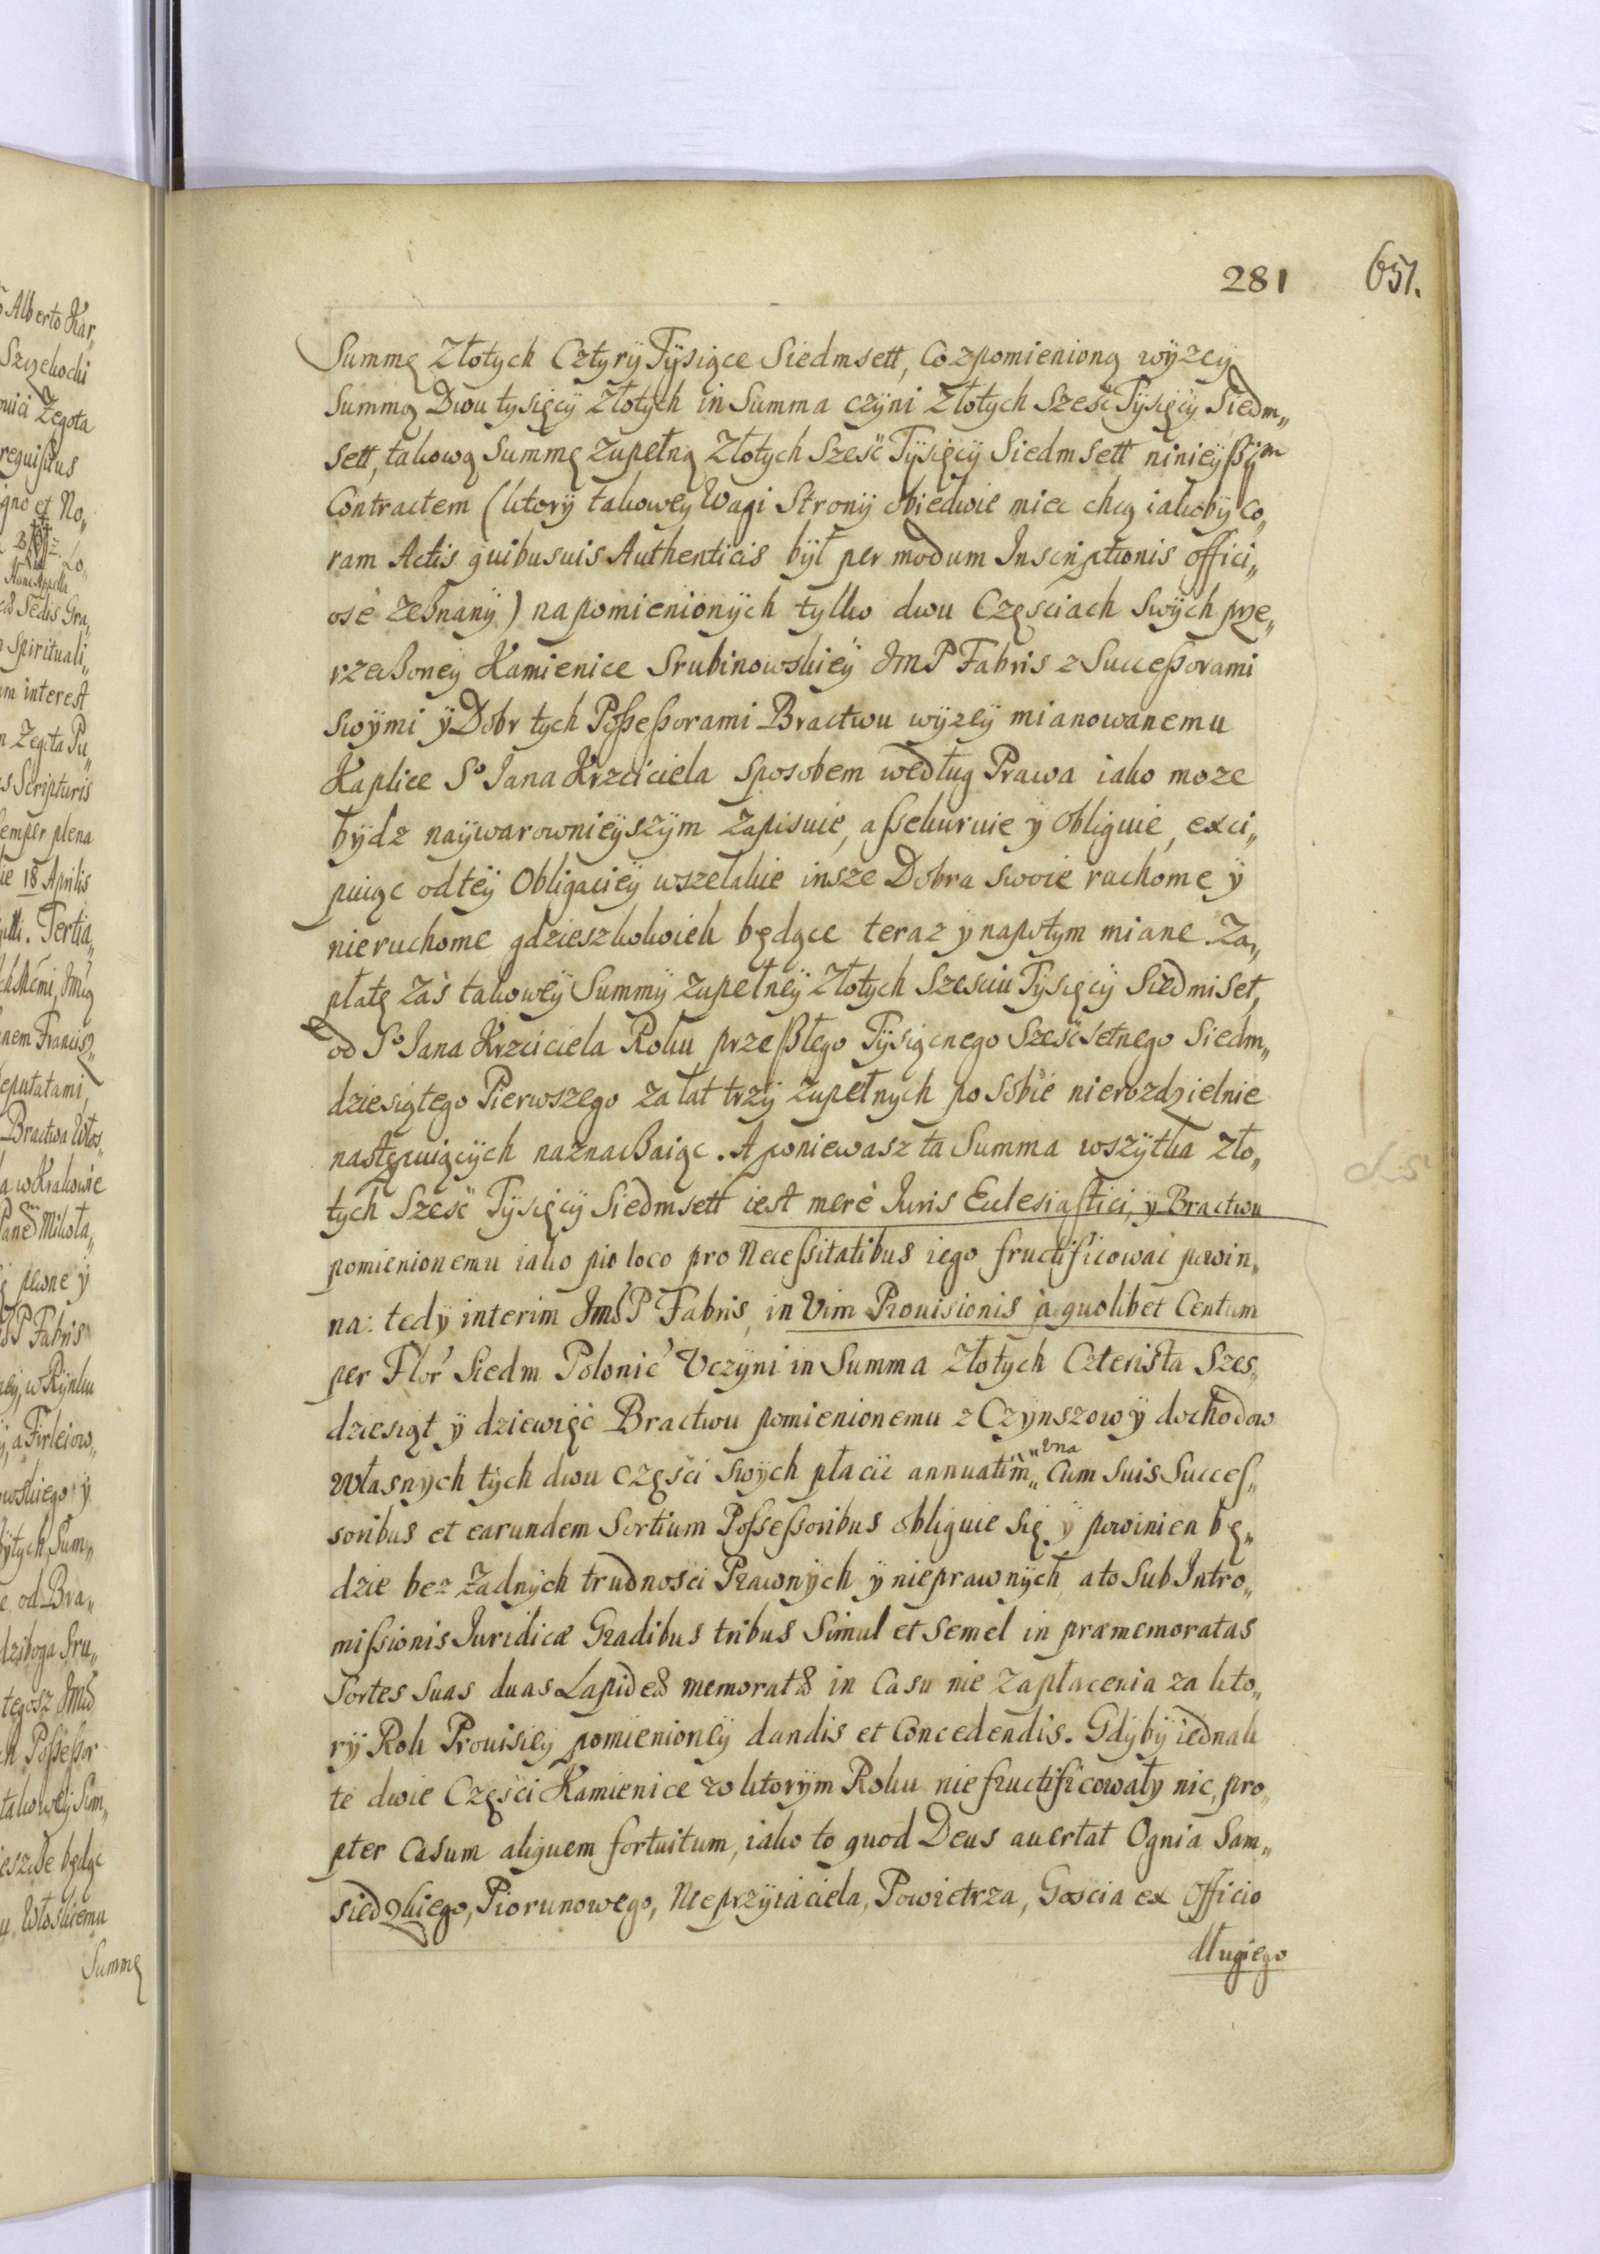 281
651.
Summę Złotych Cztyrÿ Tÿsiące Siedmsett, Co z pomienioną wÿzeÿ
Summą Dwu tysięcÿ złotÿch in Summa czÿni Złotych Szesć Tÿsięcÿ Siedm„
sett, takową Summę zupełną Złotych Szesć Tÿsięcÿ Siedmsett ninieÿßÿm
Contractem (ktorÿ takoweÿ Wagi Stronÿ obiedwie miec chcą iakobÿ Co„
ram Actis quibusuis Authenticis bÿł per modum Inscriptionis offici„
osè zeznanÿ) na pomienionÿch tylko dwu Częsciach Swÿch prze„
rzeczoneÿ Kamienice Srubinowskieÿ JmP Fabris z Succeßorami
swÿmi ÿ Dobr tych Poßeßorami Bractwu wÿzeÿ mianowanemu
Kaplice So Jana Krzciciela sposobem według Prawa iako moze
bÿdz naÿwarownieÿszÿm zapisuie, assekuruie ÿ obliguie, exci„
puiąc od teÿ Obligacieÿ wszelakie insze Dobra swoie ruchome ÿ
nieruchome gdzieszkolwiek będące teraz ÿ napotym miane. Za„
płatę zaś takoweÿ Summÿ zupełneÿ Złotych Szesciu Tÿsięcÿ Siedmiset,
od So Jana Krzciciela Roku przeßłego Tÿsiącnego Szescsetnego Siedm„
dziesiątego Pierwszego za lat trzÿ zupełnych po sobie nierozdzielnie
następuiącÿch naznaczaiąc. A poniewasz ta Summa wszÿtka zło„
tych Szesć Tÿsięcÿ Siedmsett iest merè Juris Ecclesiastici, ÿ Bractwu
pomienionemu iako pio loco pro Neceßitatibus iego fructificowac powin„
na: tedÿ interim JmśP Fabris, in Vim Prouisionis à quolibet Centum
per Flor Siedm Polonic Vczÿni in Summa Złotych Czterista Szes„
dziesiąt ÿ dziewięć Bractwu pomienionemu z Czÿnszow ÿ dochodow
Własnych tÿch dwu części swÿch płacic annuatim „vna„ Cum Suis Succes„
soribus et earundem Sortium Possessoribus obliguie się ÿ powinien bę„
dzie bez żadnÿch trudnosci Prawnÿch ÿ nieprawnÿch, a to Sub Intro„
missionis Juridicæ Gradibus tribus Simul et Semel in præmemoratas
Sortes Suas duas Lapideæ memoratæ in Casu nie zapłacenia za kto„
rÿ Rok Prouisieÿ pomienioneÿ dandis et Concedendis. Gdÿbÿ iednak
te dwie Części Kamienice w ktorÿm Roku nie fructificowałÿ nic, pro„
pter Casum aliquem fortuitum, iako to quod Deus auertat Ognia Sam„
siedzkiego, Piorunowego, Nieprzÿiaciela, Powietrza, Goscia ex Officio
długiego